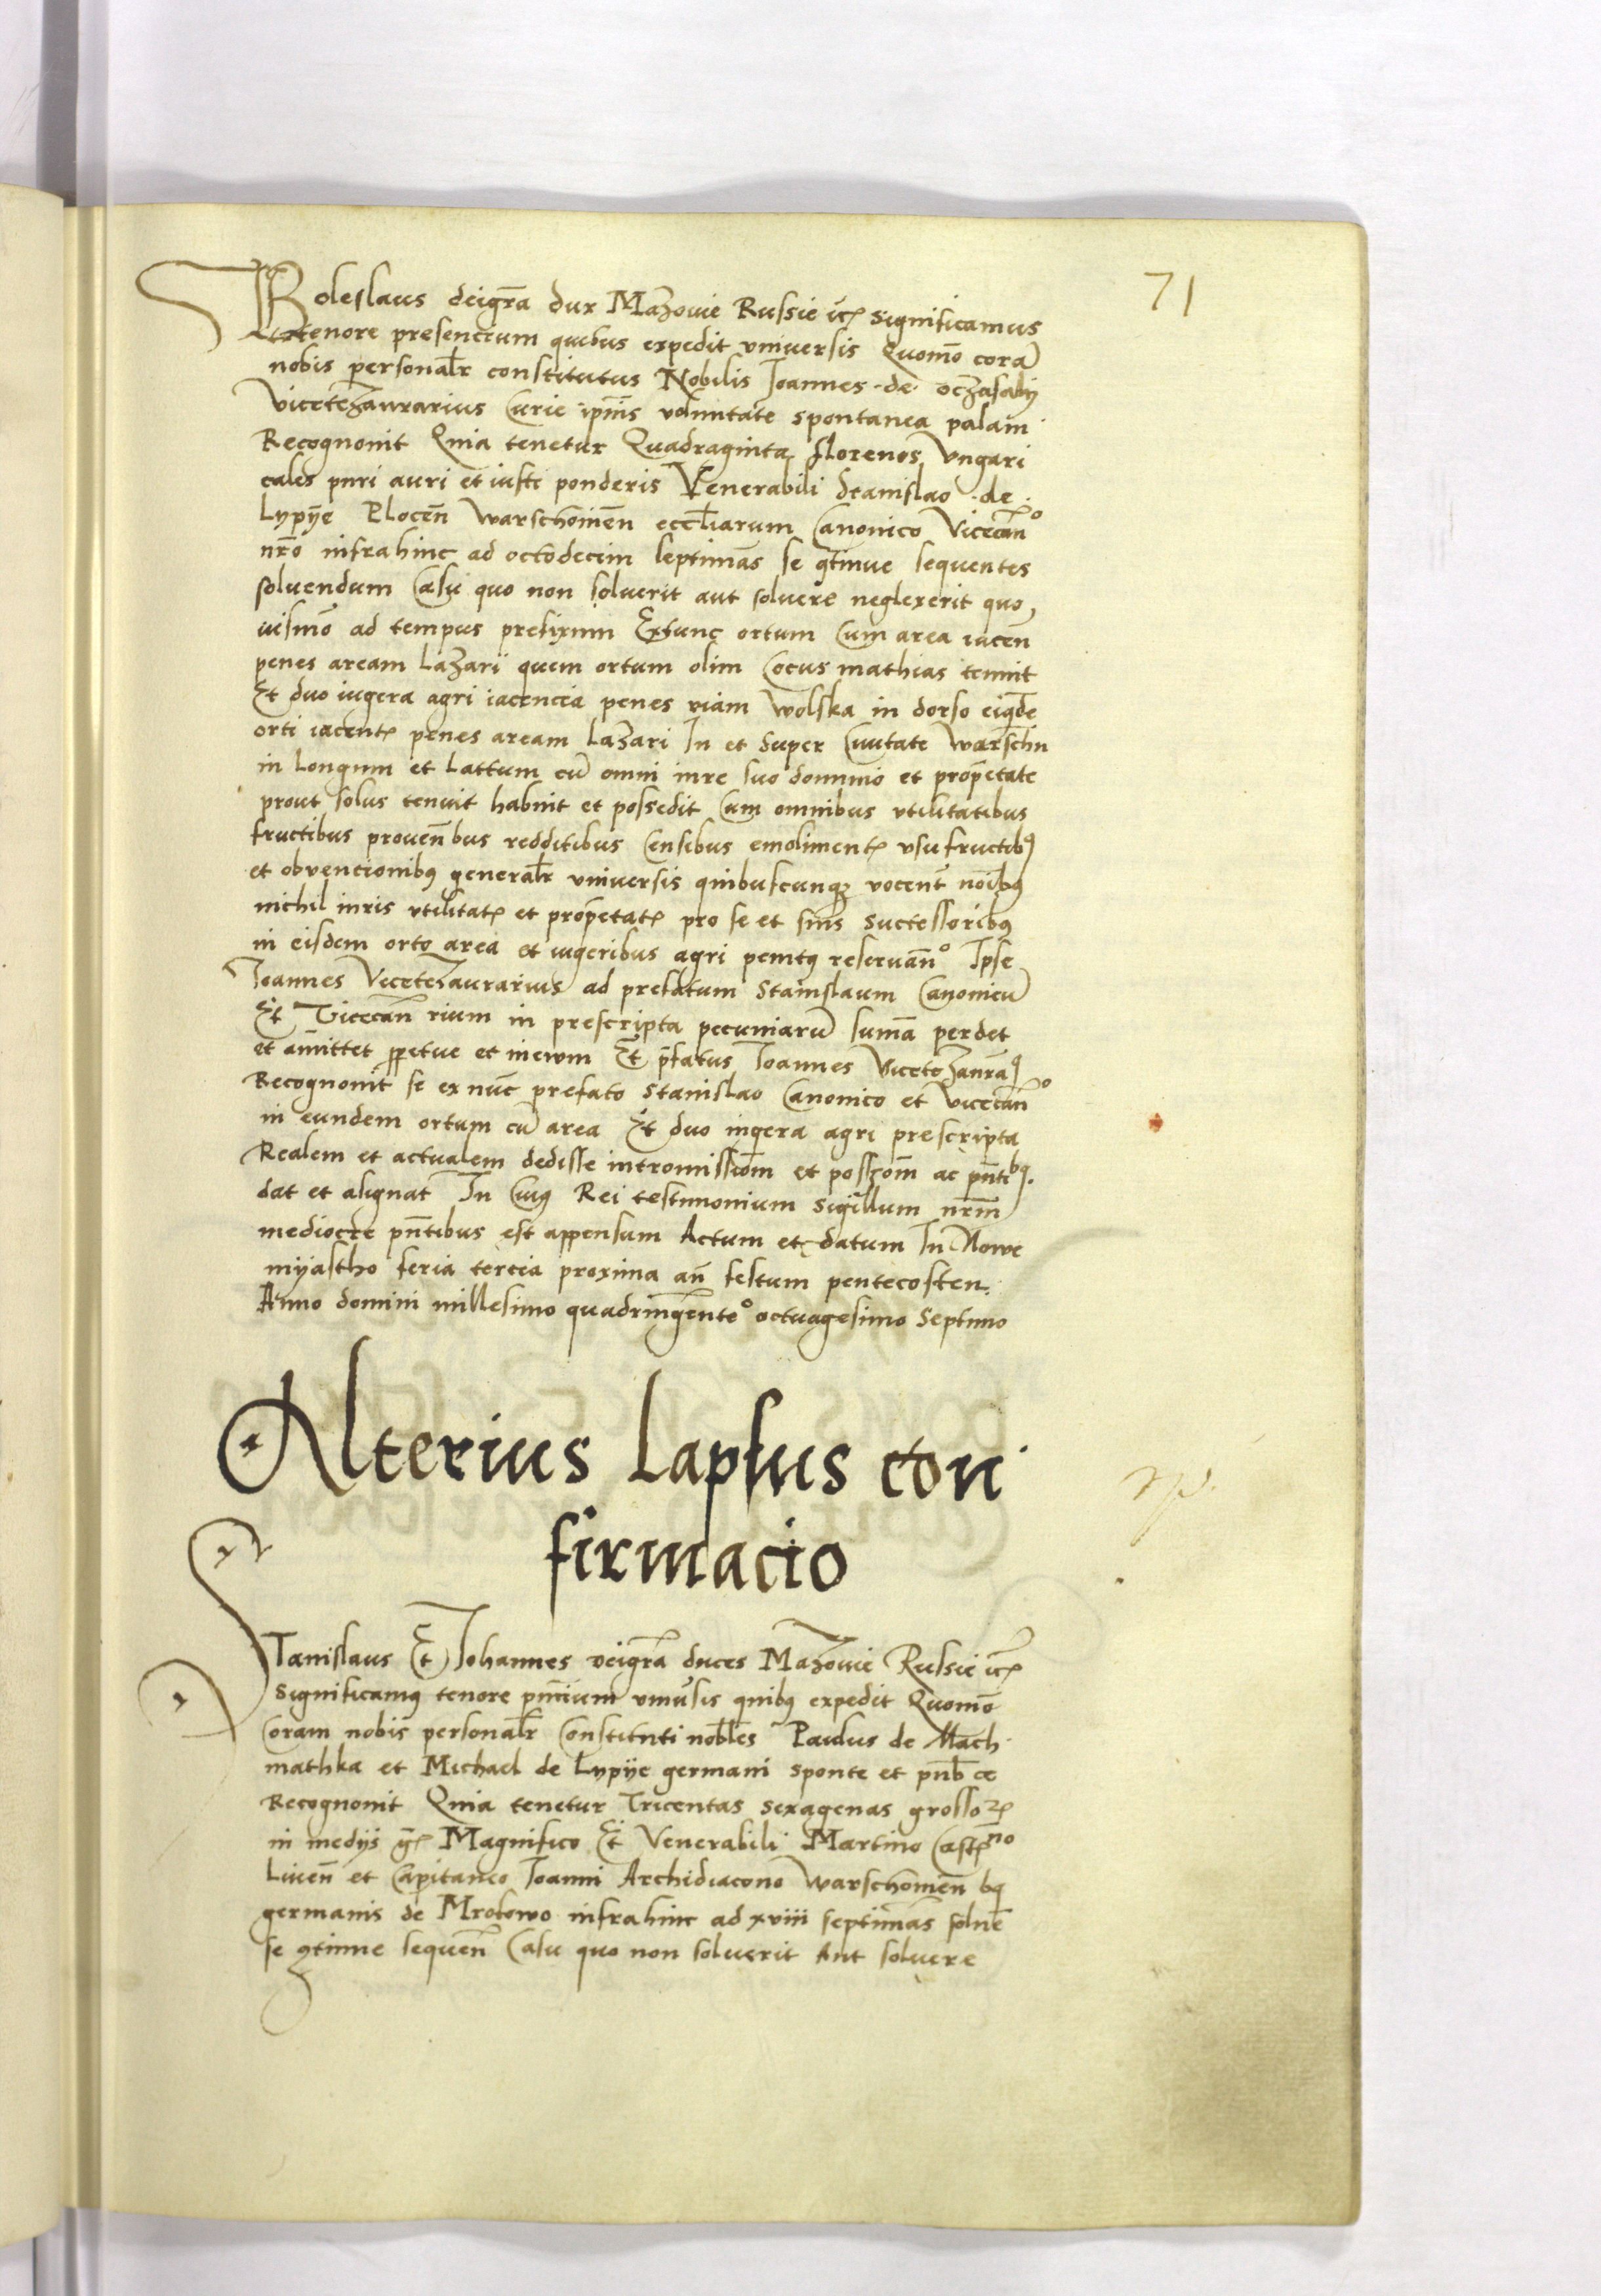 71
Boleslaus deigr̄a dux Mazouie Russie ꝛc̄ significamus
tenore presencium quibus expedit vniuersis Quomō corā
nobis personalr̄ constitutus Nobilis Joannes · de · oczasaly
Vicethezaurarius Curie voluntate spontanea palam
Recognouit Quia tenetur Quadraginta florenos Vngari
cales puri auri et iusti ponderis Venerabili Stanislao · de ·
Lypye Plocen̄ Warschouien̄ eccl̄iarum Canonico Vicecan̄º
nr̄o infrahinc ad octodecim septimas se ꝯtinue sequentes
soluendum Casu quo non soluerit aut soluere neglexerit quo
uismō ad tempus prefixum Extunc ortum Cum area iacen̄
penes aream Lazarij quem ortum olim Cocus mathias tenuit
Et duo iugera agri iacencia penes viam Wolska in dorso eiqde
orti iacentꝭ penes aream Lazari In et Super Ciuitate Warschn
in Longum et Lattum cū omni iure suo dominio et prop̄etate
prout solus tenuit habuit et possedit Cum omnibus vtilitatibus
fructibus prouen̄bus redditibus Censibus emolimentꝭ vsufructibꝯ
et obuencionibꝯ generalr̄ vniuersis quibuscunqꝫ vocent̄ noībꝯ
nichil iuris vtilitatꝭ et prop̄etatꝭ pro se et suis successoribꝯ
in eisdem orto area et iugeribus agri penitꝯ reseruan̄º Ipse
Joannes Vicethezaurarius ad prefatum Stanislaum Canonicū
Et Vicecan̄rium in prescripta pecuniarū sumā perdet
et amittet ꝑpetue et in ewm Et p̄fatus Joannes Vicethezaurāꝯ
Recognouit se ex nūc prefato Stanislao Canonico et Vicecan̄º
in eundem ortum cū area Et duo iugera agri prescripta
Realem et actualem dedisse intromissiom̄ et possꝫom̄ ac pn̄tibꝯ.
dat et asignat In Cuiꝯ Rei testimonium sigillum nr̄m
mediocre pn̄tibus est appensum Actum et datum In Nowe
myastho feria tercia proxima an̄ festum pentecosten
Anno domini millesimo quadringenteº octuagesimo Septimo
Alterius Lapsus con
firmacio
Stanislaus Et Johannes deigr̄a duces Mazouie Russie ꝛc̄
Significamꝯ tenore pn̄cium vniu̓sis quibꝯ expedit Quomō
Coram nobis personalr̄ Constituti nobl̄es Paulus de Mach
mathka et Michael de Lypye germani sponte et pub̄ce
Recognouit Quia tenetur Tricentas sexagenas grossoꝝ
in medijs gꝭ Magnifico Et Venerabili Martino Castꝭno
Liuen̄ et Capitaneo Joanni Archidiacono Warschouien̄ bꝯ
germanis de Mrokowo infrahinc ad xviii septimas solue
se ꝯtinue sequen̄ Casu quo non soluerit Aut soluere